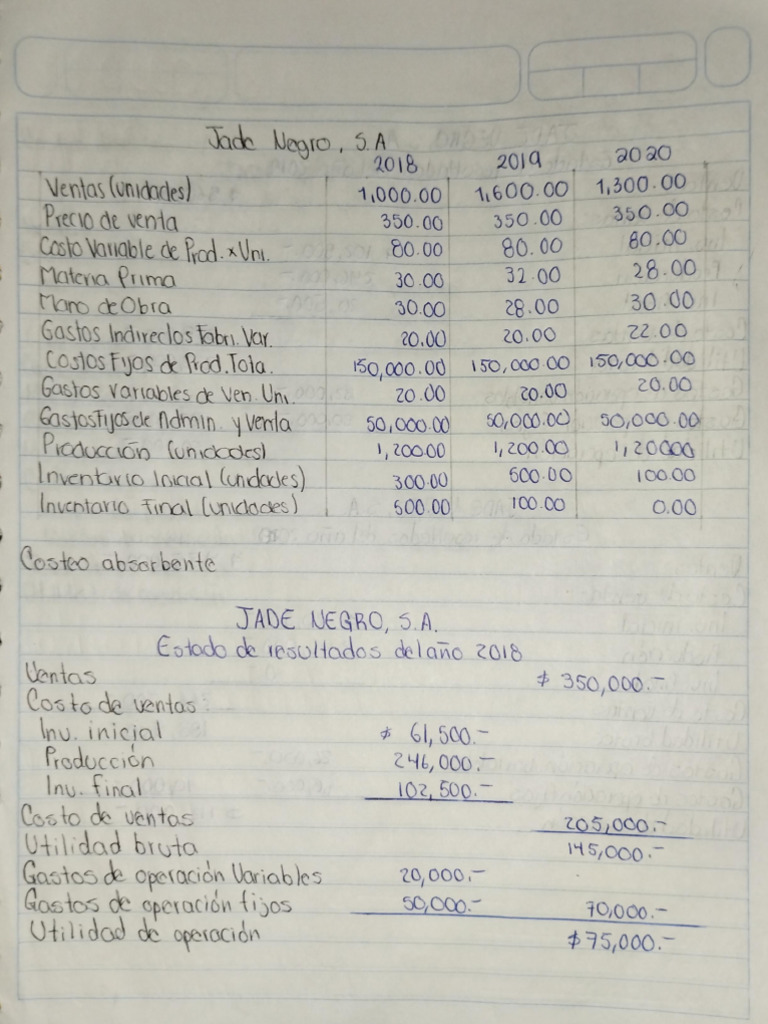 Jade Negro, S.A
2018 2019 2020
Ventas (unidades) 1,000.00 1,600.00 1,300.00
Precio de venta 350.00 350.00 350.00
Costo Variable de Prod. x Uni. 80.00 80.00 80.00
Materia Prima 30.00 32.00 28.00
Mano de Obra 30.00 28.00 30.00
Gastos Indirectos Fabri. Var. 20.00 20.00 22.00
Costos Fijos de Prod. Tota. 150,000.00 150,000.00 150,000.00
Gastos variables de Ven. Uni. 20.00 20.00 20.00
Gastos Fijos de Admin. y Venta 50,000.00 50,000.00 50,000.00
Producción (unidades) 1,200.00 1,200.00 1,20000
Inventario Inicial (unidades) 300.00 500.00 100.00
Inventario Final (unidades) 500.00 100.00 0.00
Costeo absorbente
JADE NEGRO, S.A.
Estado de resultados del año 2018
Ventas $ 350,000.-
Costo de ventas:
Inv. inicial $ 61,500.-
Producción 246,000.-
Inv. final 102,500.-
Costo de ventas 205,000.-
Utilidad bruta 145,000.-
Gastos de operación Variables 20,000.-
Gastos de operación fijos 50,000.- 70,000.-
Utilidad de operación $75,000.-